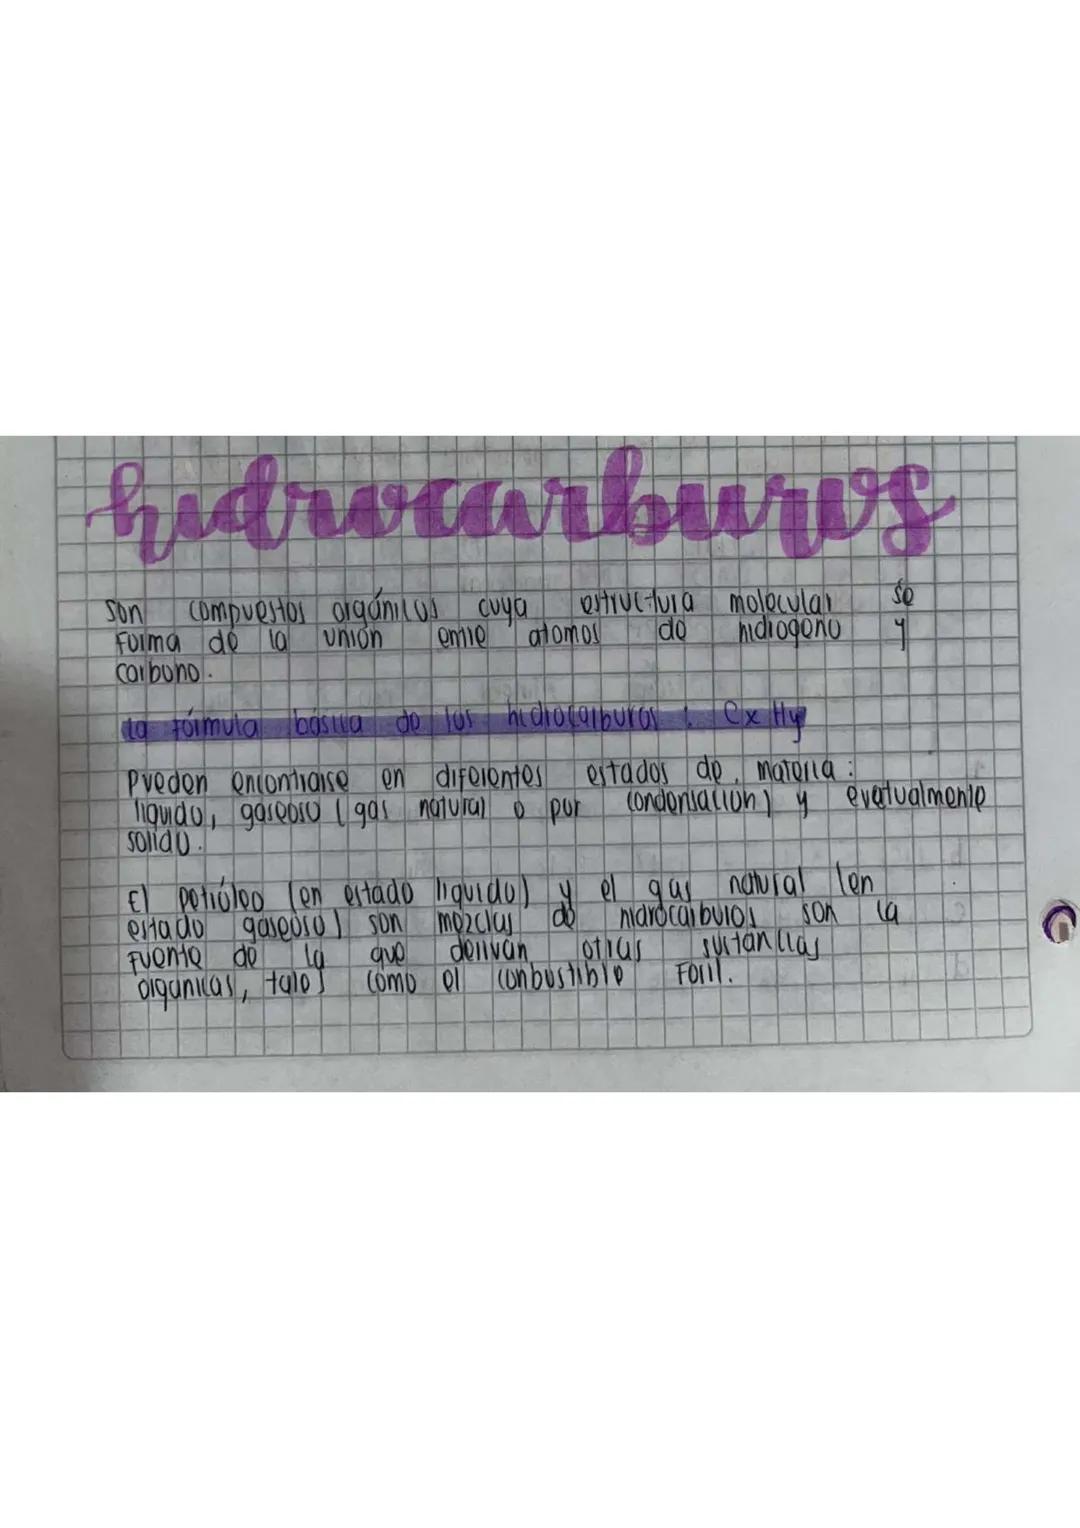 hidrocarburos
Son compuestos orgánicos cuya estructura molecular se
forma de la unión entre atomos de hidrogeno y
carbono.
La fórmula básica de los hidrocarburos : CxHy
Pueden encontrarse en diferentes estados de materia :
liquido, gaseoso (gas natural o por condensación) y evetualmente
solido.
El petróleo (en estado liquido) y el gas natural (en
estado gaseoso) son mezclas de hidrocarburos son la
fuente de la que derivan otras sustancias
organicas, tales como el conbustible Fosil.